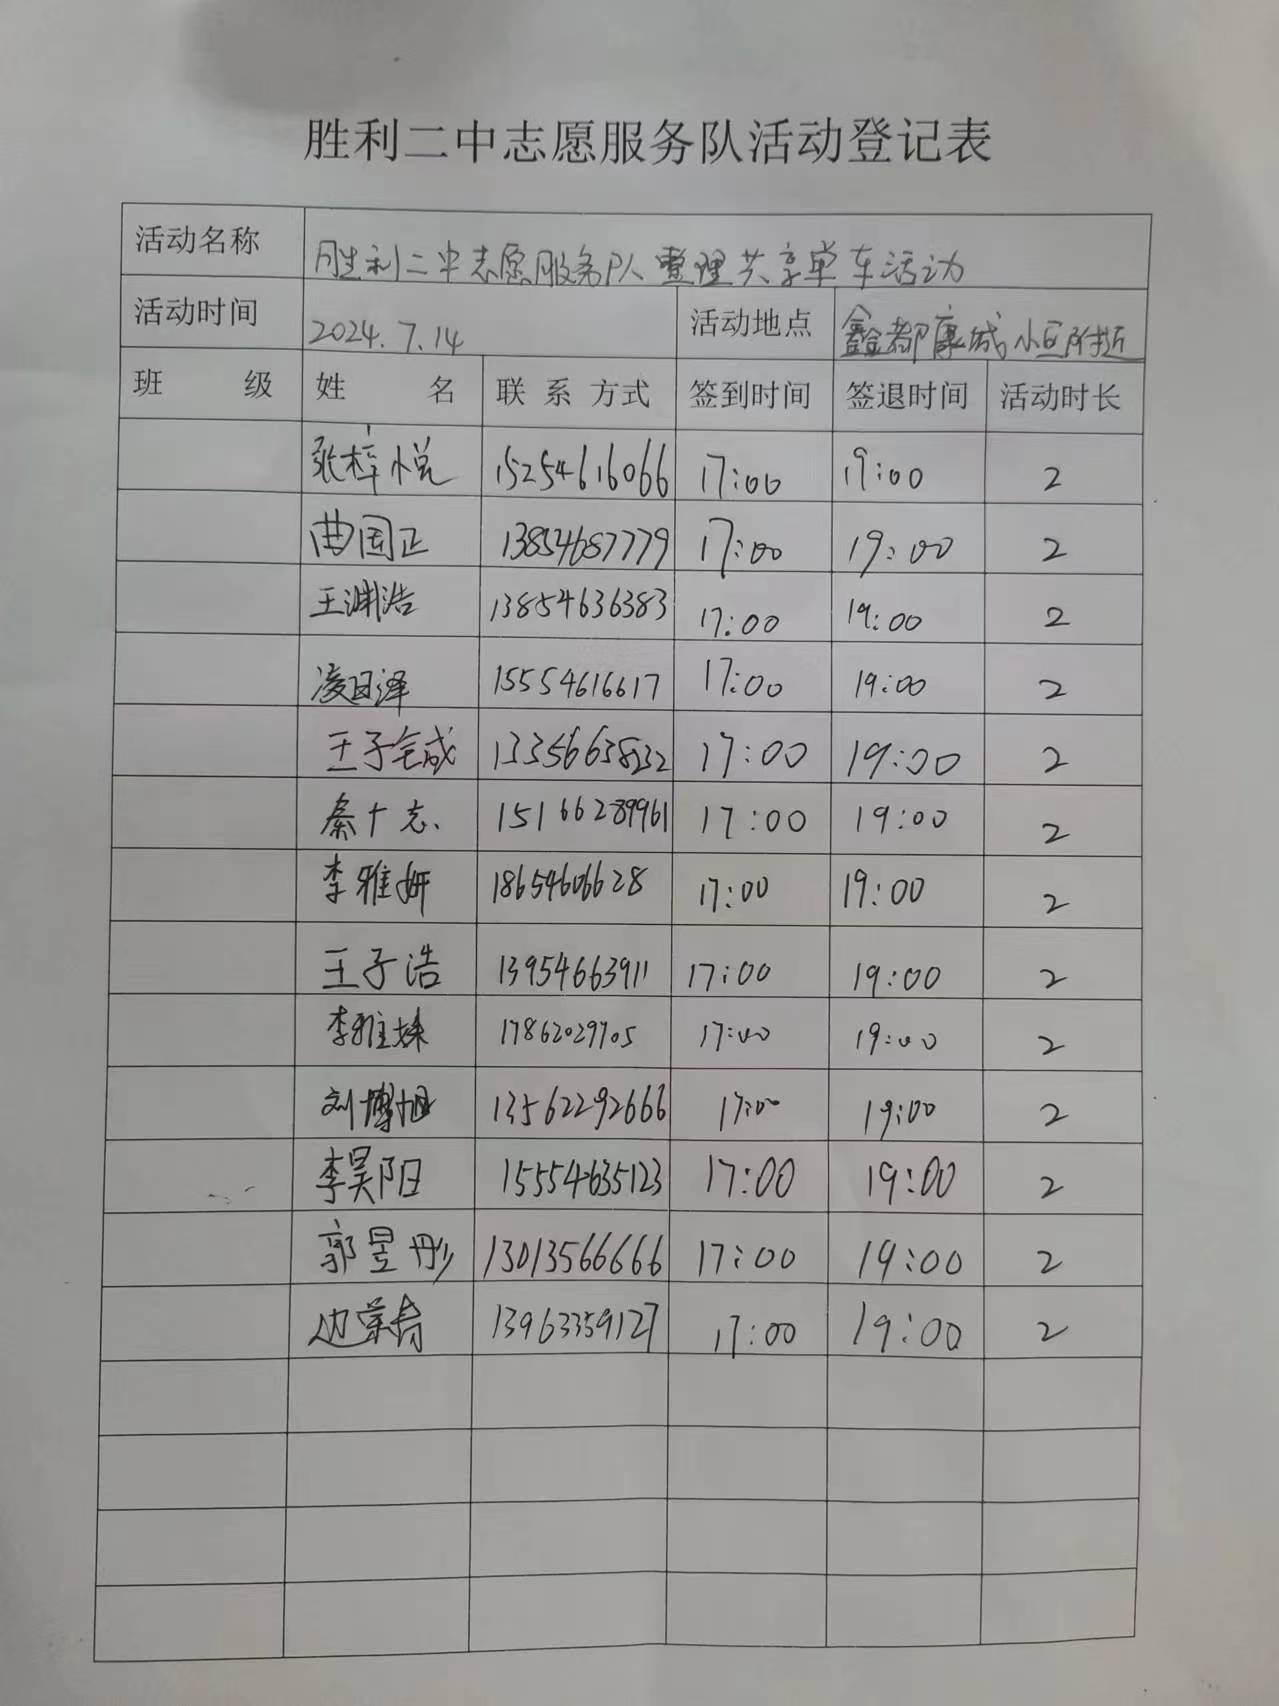 胜利二中志愿服务队活动登记表
活动名称 胜利二中志愿服务队整理共享单车活动
活动时间 2024.7.14 活动地点 鑫都康城小区附近
班 级 姓 名 联 系 方式 签到时间 签退时间 活动时长
张梓悦 15254616066 17:00 19:00 2
曲国正 13854687779 17:00 19:00 2
王渊浩 13854636383 17:00 19:00 2
凌日泽 15554616617 17:00 19:00 2
王子 17:00 19:00 2
秦十志 15166289961 17:00 19:00 2
李雅妍 18654606628 17:00 19:00 2
王子浩 13954663911 17:00 19:00 2
李雅姝 17862029705 17:00 19:00 2
刘博旭 13562292666 17:00 19:00 2
李昊阳 15554635123 17:00 19:00 2
郭昱彤 13013566666 17:00 19:00 2
边 13963359127 17:00 19:00 2